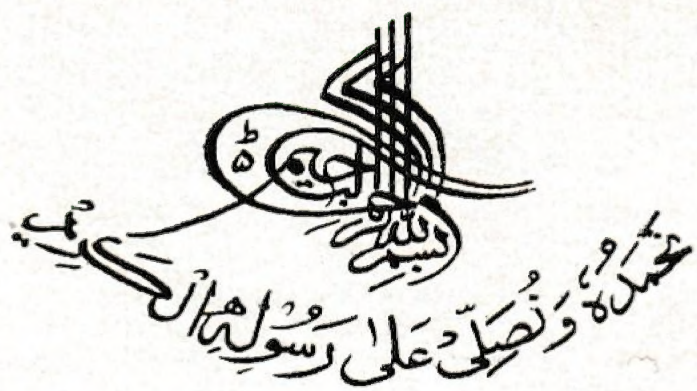 بسم الله الرحمن الرحيم ط ۵
نحمدہٗ وَ نُصَلِّیْ عَلٰی رَسُوْلِهِ الْکَرِیْمِ